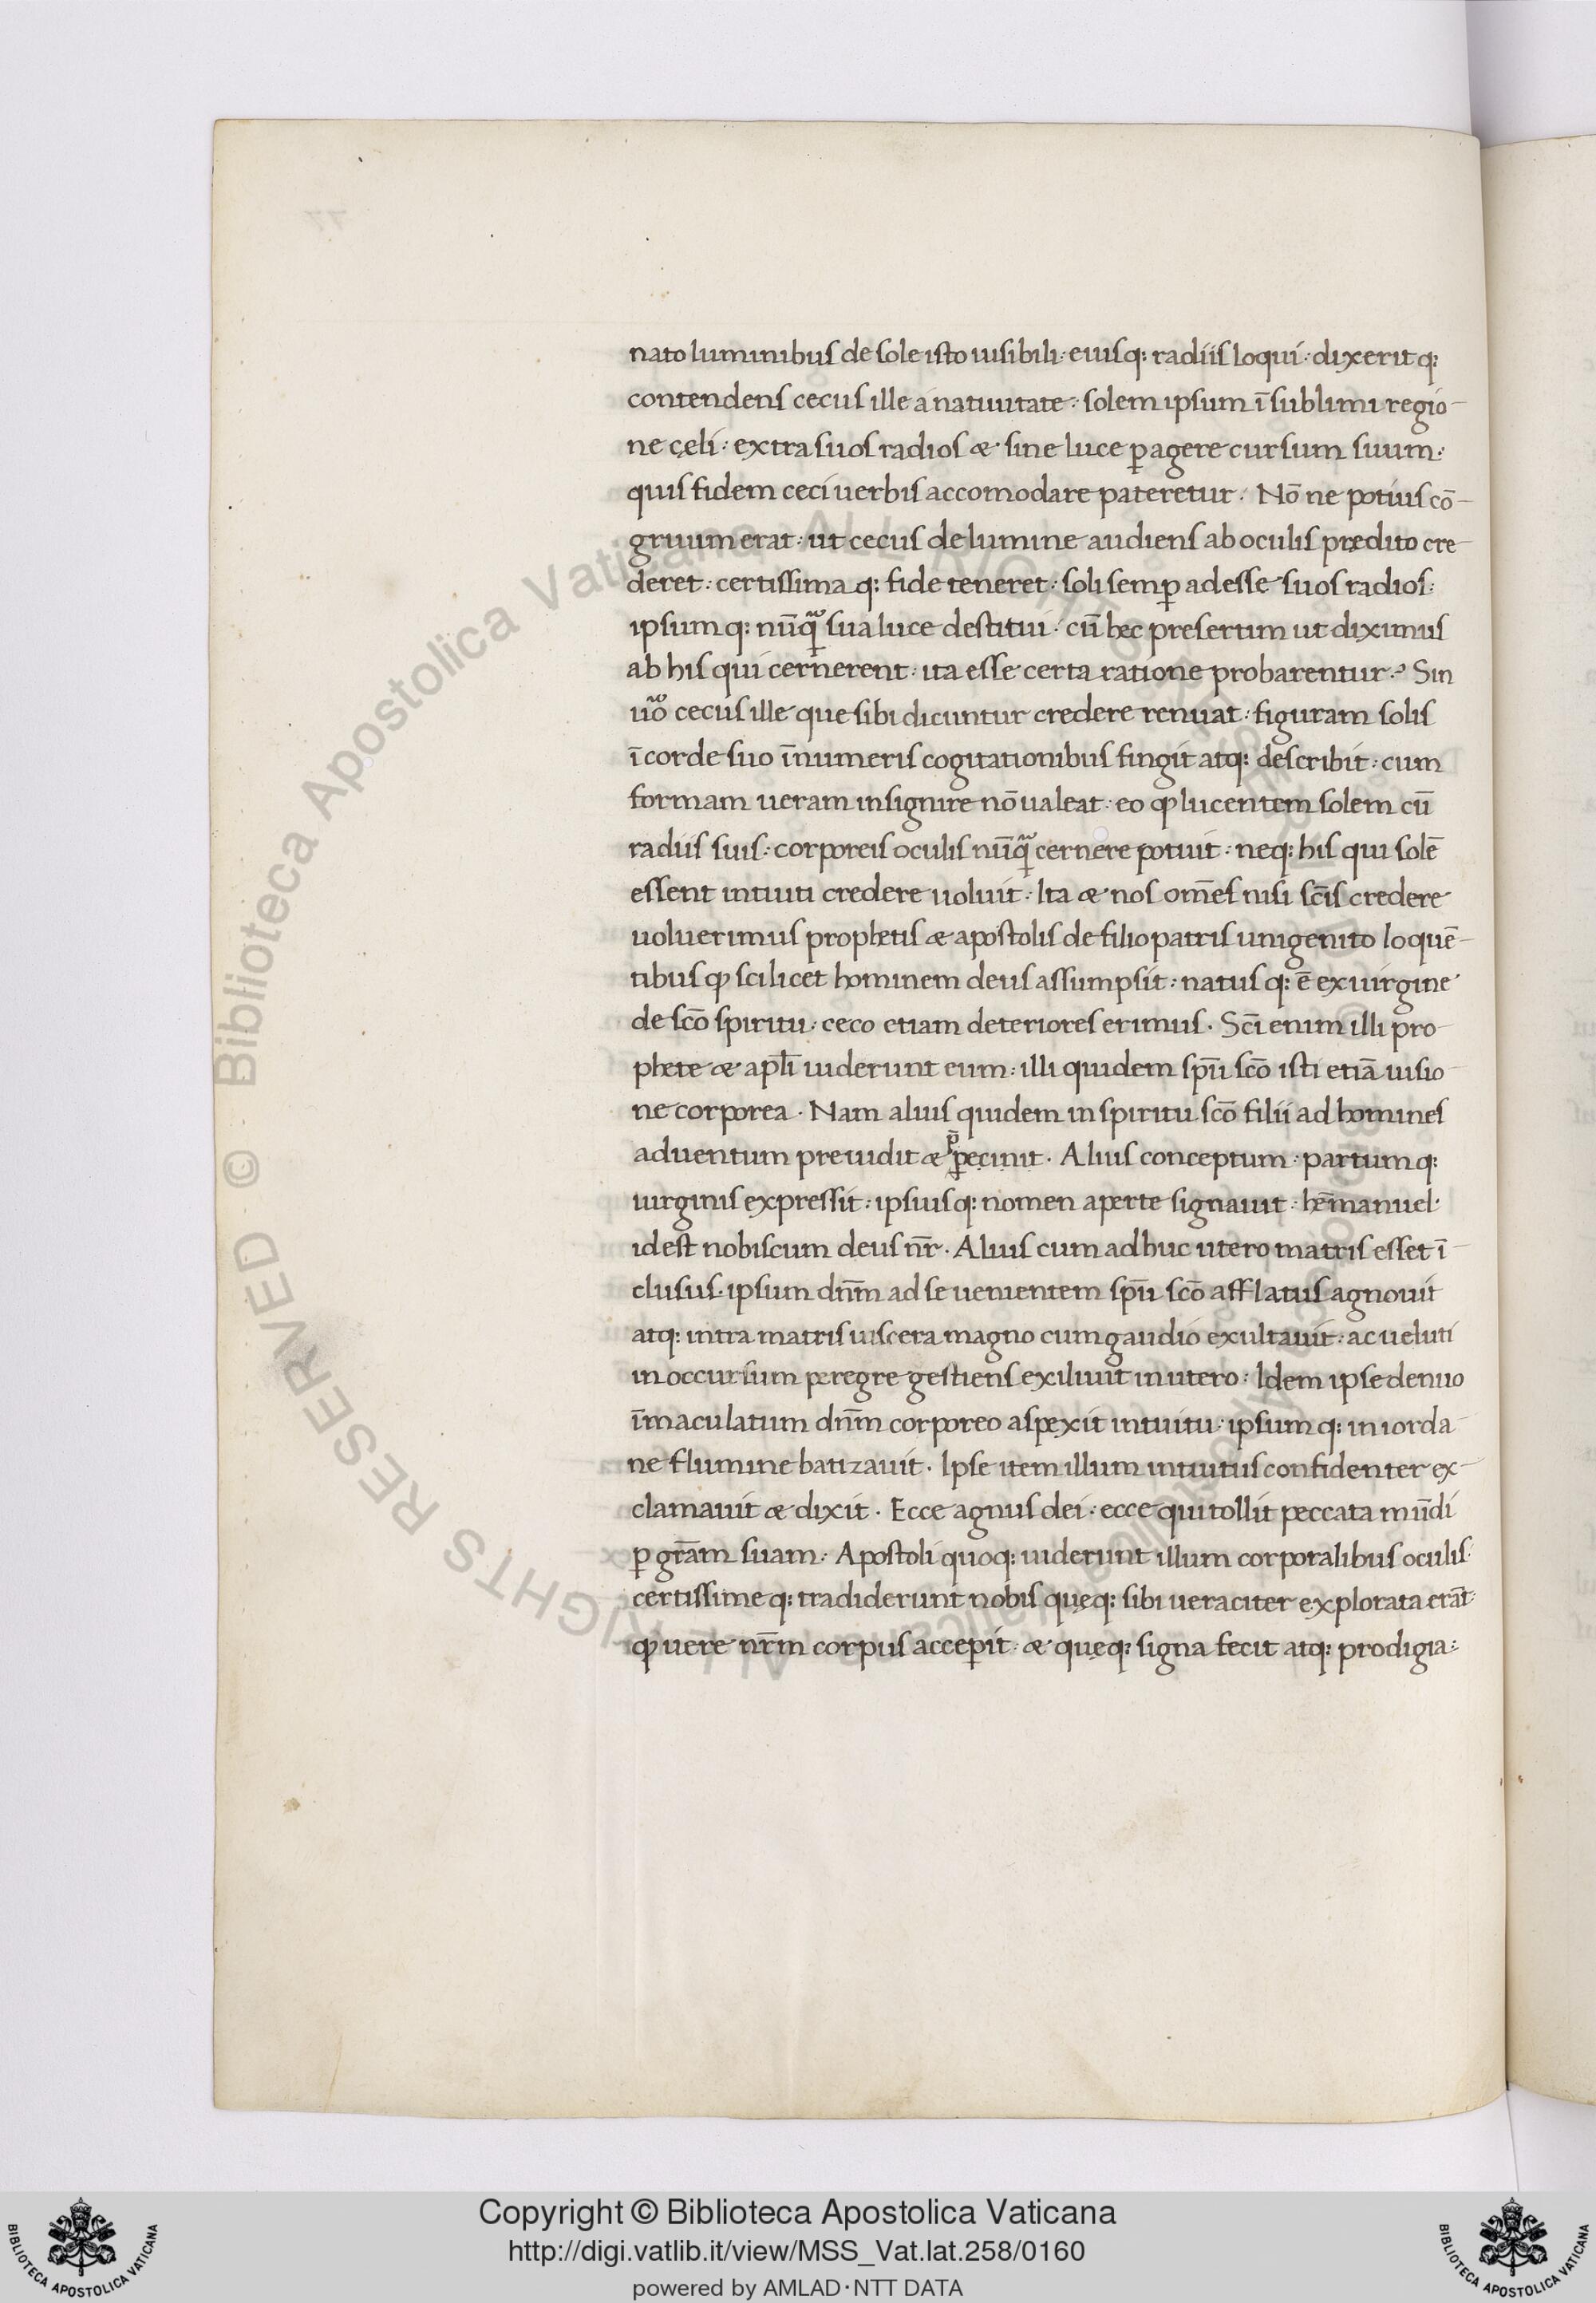 nato luminibus de sole isto uisibili: eiusq: radiis loqui: dixeritq:
contendens cecus ille a natiuitate: solem ipsum ī sublimi regio-
ne cęli: extra suos radios & sine luce ꝑagere cursum suum:
quis fidem ceci uerbis accomodare pateretur. Nō ne potius cō-
gruum erat: ut cecus de lumine audiens ab oculis predito cre-
deret: certissimaq: fide teneret: soli semꝑ adesse suos radios:
ipsumq: nūq̃ sua luce destitui: cū hęc presertim ut diximus
ab his qui cernerent: ita esse certa ratione probarentur? Sin
uo᷎ cecus ille que sibi dicuntur credere renuat: figuram solis
ī corde suo īnumeris cogitationibus fingit atq: describit: cum
formam ueram insignire nō ualeat: eo ꝙ lucentem solem cū
radiis suis: corporeis oculis nūq̃ cernere potuit: neq: his qui solē
essent intuiti credere uoluit: Ita & nos om̄es nisi sc̄is credere
uoluerimus prophetis & apostolis de filio patris unigenito loquē-
tibus ꝙ scilicet hominem deus assumpsit: natusq: ē ex uirgine
de sc̄o spiritu: ceco etiam deteriores erimus. Sc̄i enim illi pro-
phete & apl̄i uiderunt eum: illi quidem sp̄u sc̄o isti etiā uisio-
ne corporea. Nam alius quidem in spiritu sc̄o filii ad homines
p̄
aduentum preuidit & ꝑecinit. Alius conceptum: partumq:
uirginis expressit: ipsiusq: nomen aperte signauit: hēmanuel:
id est nobiscum deus nr̄. Alius cum adhuc utero matris esset ī-
clusus. ipsum dn̄m ad se uenientem sp̄u sc̄o afflatus agnouit
atq: intra matris uiscera magno cum gaudio exultauit: ac ueluti
in occursum peregre gestiens exiliuit in utero: Idem ipse denuo
īmaculatum dn̄m corporeo aspexit intuitu: ipsumq: in iorda-
ne flumine batizauit. Ipse item illum intuitus confidenter ex-
clamauit & dixit. Ecce agnus dei: ecce qui tollit peccata mūdi
ꝑ gr̄am suam: Apostoli quoq: uiderunt illum corporalibus oculis:
certissimeq: tradiderunt nobis quęq: sibi ueraciter explorata erāt:
ꝙ uere nr̄m corpus acceꝑit: & quęq: signa fecit atq: prodigia:
Copyright © Biblioteca Apostolica Vaticana
http://digi.vatlib.it/view/MSS_Vat.lat.258/0160
powered by AMLAD·NTT DATA